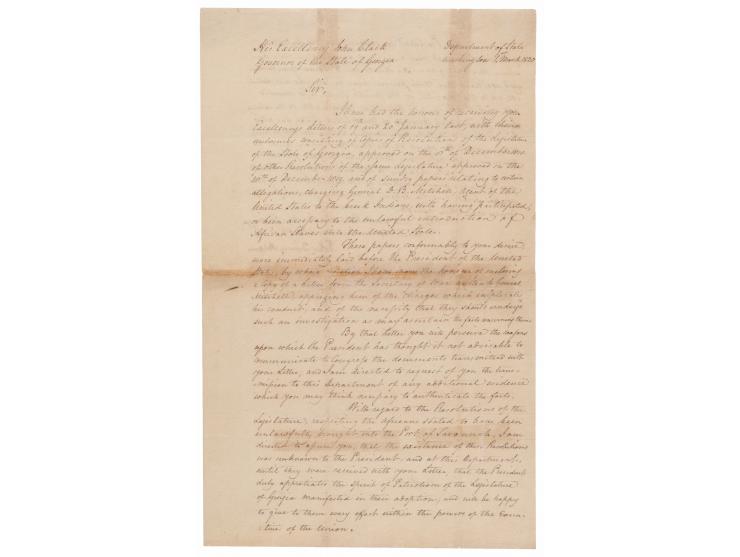 His Excellency John Clark
Governor of the State of Georgia
Department of State
Washington March 1820
Sir,
I have had the honour of receiving your
Excellency's letters of 19th and 20th January last, with their
enclosures consisting of copies of Resolution of the Legislature
of the State of Georgia, approved on the of December
of other Resolutions of the same Legislature approved on the
20th of December 1819, and of sundry papers relating to certain
allegations, charging General D. B. Mitchell, agent of the
United States to the Creek Indians, with having participated,
or been accessary to the unlawful introduction of
African Slaves into the United States.
These papers conformably to your desire
were immediately laid before the President of the United
States, by whose direction I have now the honour of enclosing
a Copy of a letter from the Secretary of War to General
Mitchell apprizing him of the charges which implicate
his conduct; and of the necessity that they should undergo
such an investigation as may ascertain the facts concerning them.
By that letter you will perceive the reasons
upon which the President has thought it not advisable to
communicate to Congress the documents transmitted with
your Letter, and I am directed to request of you the trans-
mission to this Department of any additional evidence
which you may think necessary to authenticate the facts.
With regard to the Resolutions of the
Legislature, respecting the Africans stated to have been
unlawfully brought into the Port of Savannah, I am
directed to assure you, that the existence of these Resolutions
was unknown to the President and at this Department,
until they were received with your Letter, that the President
duly appreciates the spirit of Patriotism of the Legislature
of Georgia manifested in their adoption; and will be happy
to give to them every effect within the powers of the Execu-
tive of the Union.